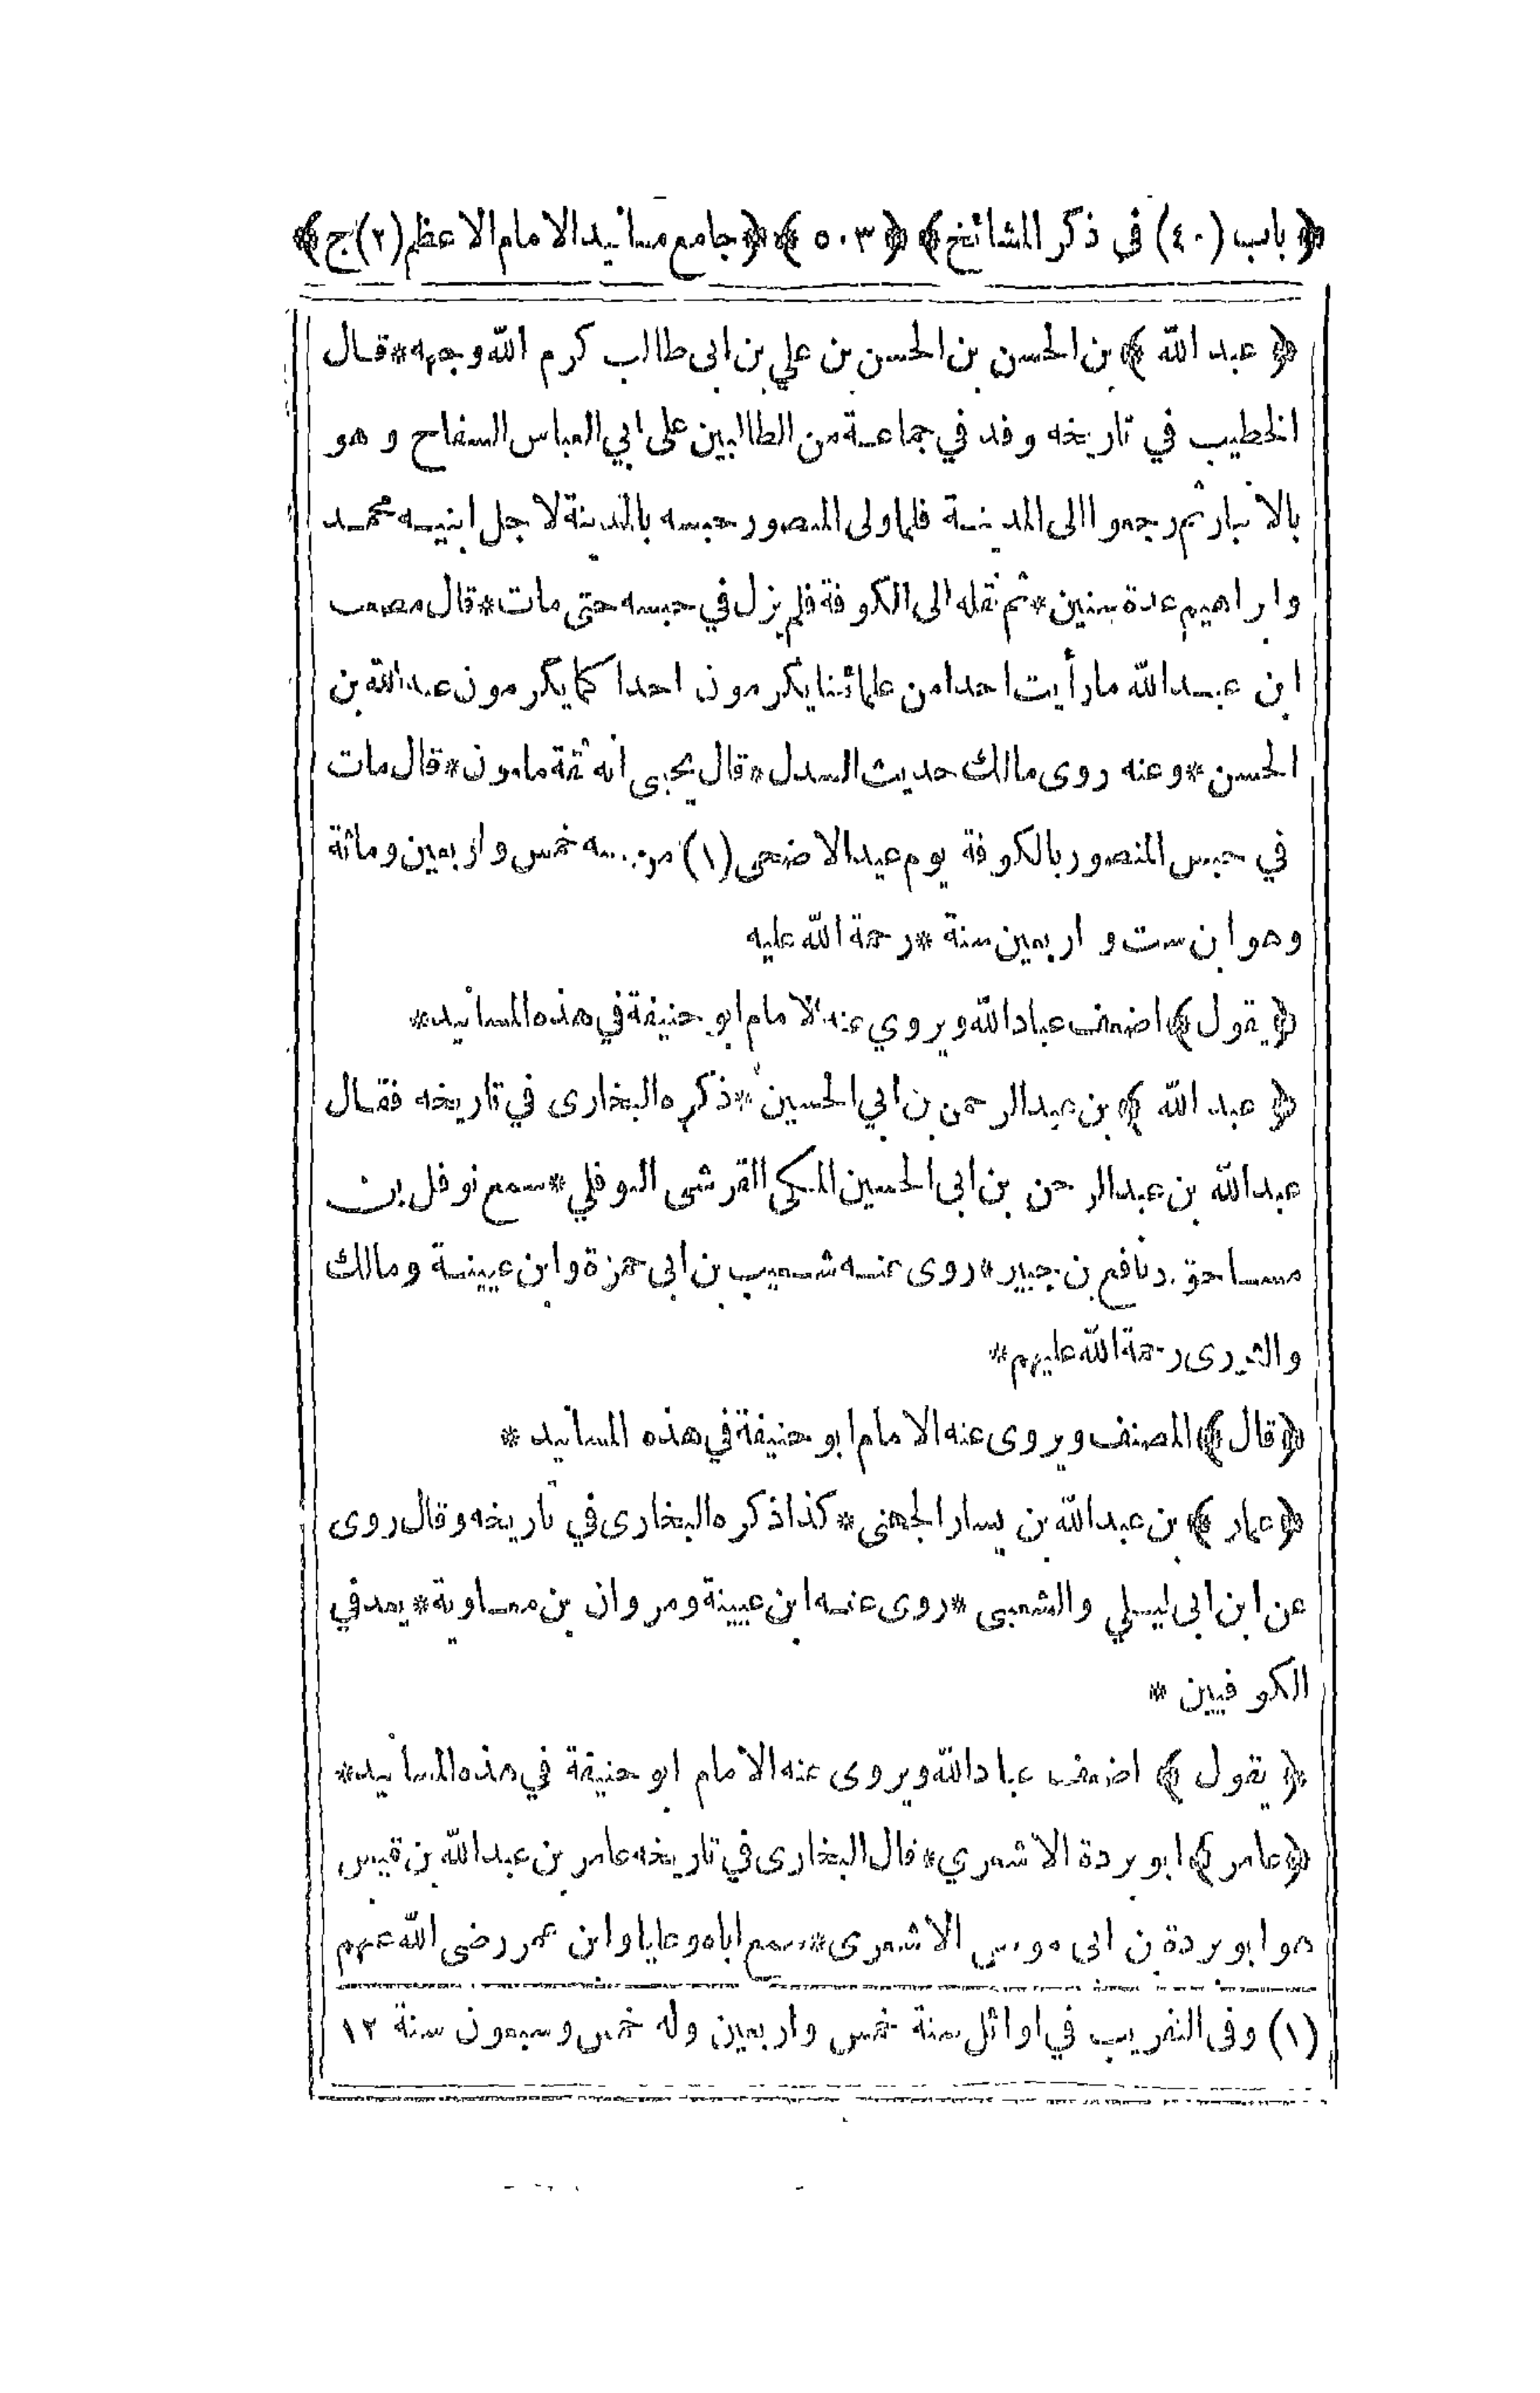 ﴿ باب (٤٠) فى ذكر المشائخ ﴾ ﴿ ٥٠٣ ﴾ ﴿ جامع مسانيد الامام الاعظم (٢) ج ﴾
﴿ عبد الله ﴾ بن الحسن بن الحسن بن علي بن ابى طالب كرم الله وجهه * قال
الخطيب في تاريخه وفد في جماعة من الطالبين على ابي العباس السفاح و هو
بالانبار ثم رجعوا الى المدينة فلما ولى المنصور حبسه بالمدينة لاجل ابنيه محمد
وابراهيم عدة سنين * ثم نقله الى الكوفة فلم يزل في حبسه حتى مات * قال مصعب
ابن عبد الله ما رأيت احدا من علمائنا يكرمون احدا كما يكرمون عبد الله بن
الحسن * وعنه روى مالك حديث السدل * قال يحيى انه ثقة مامون * قال مات
في حبس المنصور بالكوفة يوم عيد الاضحى (١) من سنه خمس واربعين ومائة
وهو ابن ست و اربعين سنة * رحمة الله عليه
﴿ يقول ﴾ اضعف عباد الله ويروي عنه الامام ابو حنيفة في هذه المسانيد *
﴿ عبد الله ﴾ بن عبد الرحمن بن ابي الحسين * ذكره البخارى في تاريخه فقال
عبد الله بن عبد الرحمن بن ابى الحسين المكى القرشى النوفلي * سمع نوفل بن
مساحق ونافع بن جبير * روى عنه شعيب بن ابى حمزة وابن عيينة ومالك
والثورى رحمة الله عليهم *
﴿ قال ﴾ المصنف ويروى عنه الامام ابو حنيفة في هذه المسانيد *
﴿ عمار ﴾ بن عبد الله بن يسار الجهنى * كذا ذكره البخارى في تاريخه وقال روى
عن ابن ابى ليلي والشعبى * روى عنه ابن عيينة ومروان بن معاوية * يعد في
الكوفيين *
﴿ يقول ﴾ اضعف عباد الله ويروى عنه الامام ابو حنيفة في هذه المسانيد *
﴿ عامر ﴾ ابو بردة الاشعري * قال البخارى في تاريخه عامر بن عبد الله بن قيس
هو ابو بردة بن ابى موسى الاشعرى * سمع اباه وعليا وابن عمر رضى الله عنهم
(١) وفى التقريب في اوائل سنة خمس واربعين وله خمس وسبعون سنة ١٢